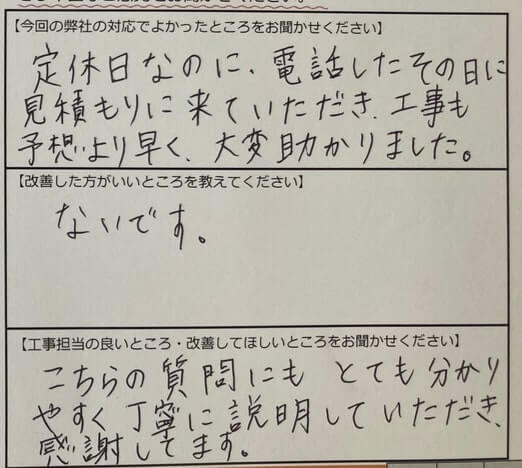 【今回の弊社の対応でよかったところをお聞かせください】
定休日なのに、電話したその日に
見積もりに来ていただき、工事も
予想より早く、大変助かりました。
【改善した方がいいところを教えてください】
ないです。
【工事担当の良いところ・改善してほしいところをお聞かせください】
こちらの質問にも とても分かり
やすく丁寧に説明していただき、
感謝してます。